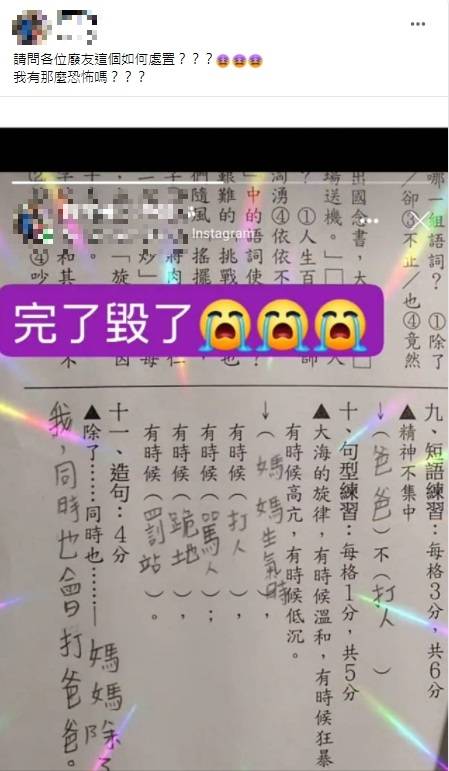 請問各位廢友這個如何處置？？？😡😡😡
我有那麼恐怖嗎？？？
Instagram
完了毀了😭😭😭
哪一組語詞？　①除了
／卻③不止／也④竟然
出國念書，大
場送機。」□
？　①人生百
④依依不
」中的語詞使
艱難的，挑戰
們隨風，搖擺
九、短語練習：每格3分，共6分
▲精神不集中
↓（爸爸）不（打人）
十、句型練習：每格1分，共5分
▲大海的旋律，有時候溫和，有時候狂暴
有時候高亢，有時候低沉。
↓（媽媽生氣時），
有時候（打人），
有時候（罵人）；
有時候（跪地），
有時候（罰站）。
十一、造句：4分
▲除了……同時也……—媽媽除了
我，同時也會打爸爸。